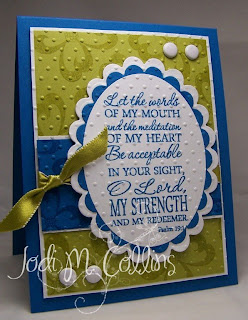 Let the words
OF MY MOUTH
and the meditation
OF MY HEART
Be acceptable
IN YOUR SIGHT,
O Lord,
MY STRENGTH
AND MY REDEEMER.
Jodi M. Collins